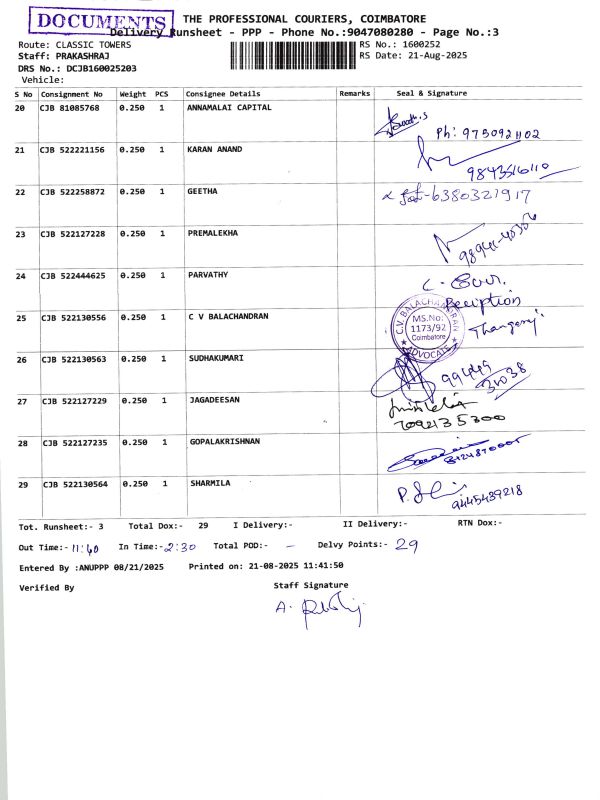 DOCUMENTS
THE PROFESSIONAL COURIERS, COIMBATORE
Delivery Runsheet - PPP - Phone No.:9047080280 - Page No.:3
Route: CLASSIC TOWERS RS No.: 1600252
Staff: PRAKASHRAJ RS Date: 21-Aug-2025
DRS No.: DCJB160025203
Vehicle:
S No Consignment No Weight PCS Consignee Details Remarks Seal & Signature
20 CJB 81085768 0.250 1 ANNAMALAI CAPITAL
Ph: 9750921102
21 CJB 522221156 0.250 1 KARAN ANAND
9843516110
22 CJB 522258872 0.250 1 GEETHA
6380321917
23 CJB 522127228 0.250 1 PREMALEKHA
24 CJB 522444625 0.250 1 PARVATHY
25 CJB 522130556 0.250 1 C V BALACHANDRAN
C.V. BALACHANDRAN
MS.No:
1173/92
Coimbatore
ADVOCATE
26 CJB 522130563 0.250 1 SUDHAKUMARI
99449
31038
27 CJB 522127229 0.250 1 JAGADEESAN
7092135300
28 CJB 522127235 0.250 1 GOPALAKRISHNAN
29 CJB 522130564 0.250 1 SHARMILA
9445439218
Tot. Runsheet:- 3 Total Dox:- 29 I Delivery:- II Delivery:- RTN Dox:-
Out Time:- 11:40 In Time:- 2:30 Total POD:- - Delvy Points:- 29
Entered By :ANUPPP 08/21/2025 Printed on: 21-08-2025 11:41:50
Verified By Staff Signature